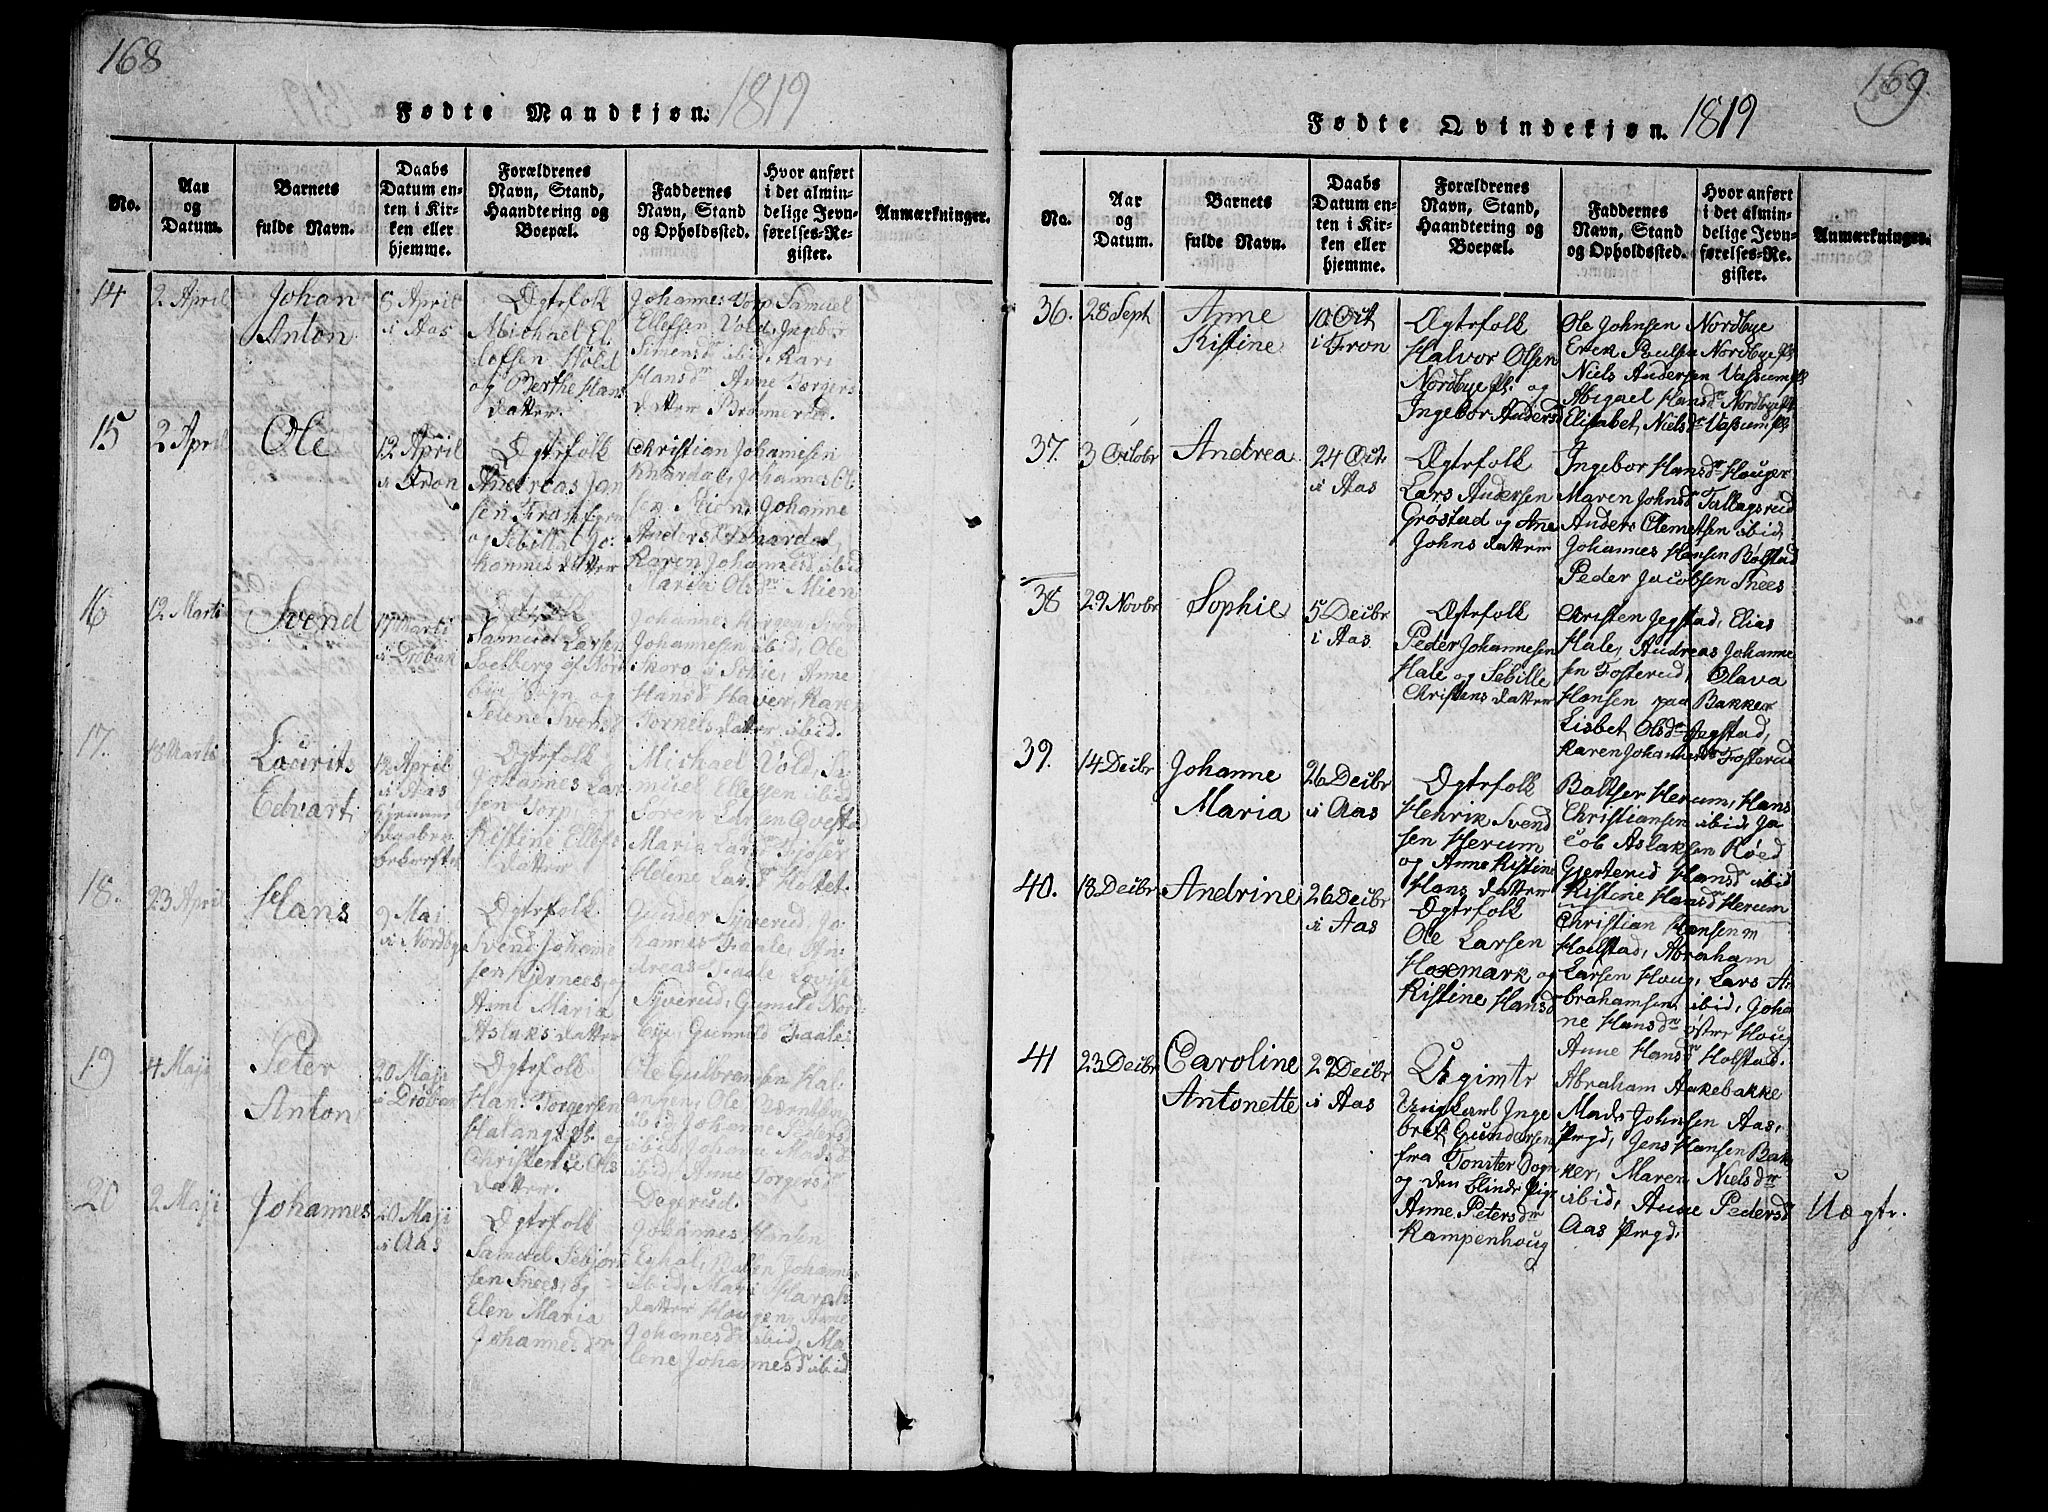 168
Fødte Mandkjøn. 1819
No.
Aar
og
Datum.
Barnets
fulde Navn.
Daabs
Datum en-
ten i Kir-
ken eller
hjemme.
Forældrenes
Navn, Stand,
Haandtering og
Boepæl.
Faddernes
Navn, Stand
og Opholdssted.
Hvor anført
i det almin-
delige Jevn-
førelses-Re-
gister.
Anmærkninger.
14
2 April
Johan
Anton
8 April
i Aas
Ægtefolk
Michael El-
lefsen Vold
og Berthe Hans
datter.
Johannes Torp Samuel
Ellefsen Vold, Ingebor
Simensdr ibid, Kari
Hansdr Anne Torgers
datter
15
2 April
Ole
12 April
i Fron
Ægtefolk
Andreas Jan
sen
og Sebille Jo-
hannesdatter
Christian Johannsen
Johannes Ol-
sen Johanne
Anders
Karen Johannesd ibid
Maria Olsdr Mien
16
12 Marti
Svend
17 Marti
i Drøbak
Ægtefolk
Samuel Larsen
Solberg af Nor-
bye Sogn og
Selene Svensd
Johannes Horgen
Johannesen ibid, Ole
Skoro i Schie, Anne
Hansd Haver, Karen
datter ibid.
17.
18 Marti
Lourits
Edvart
12 April
i Aas
Hjemme
Daaben
bekræfte
Ægtefolk
Johannes Lar
sen Torp
Kistine Ellefs
datter
Michael Vold, Sa-
muel Ellefsen ibid
Soren Larsen Qvestad
Maria Larsdr Kjoser
Helene Larsdr Holtet.
18.
23 April
Hans
9 Mai
i Nordby
Ægtefolk
Svend Johanne
sen Kjernees og
Anne Maria
Aslaksdatter
Gunder Syverud, Jo-
hannes Faale, An-
dreas Faale Lovise
Syverud, Gunild Nord
bye, Gunild Faale
19
4 Maji
Peter
Anton
20 Maji
i Drøbak
Ægtefolk
Hans Torgersen
Halangs pl. og
Christense Ols
datter.
Ole Gulbransen Hal-
angen, Ole
ibid Johanne Peders
ibid Johanne Madsd
ibid, Anne Torgersdr
Degerud.
20
2 Maji
Johannes
20 Maji
i Aas
Ægtefolk
Samuel
sen Snees, og
Elen Maria
Johannesdr
Johannes Hansen
Johannes
ibid, Mari
datter Hougen, Anne
Johannesdr ibid, Ma-
lene Johannesdr ibid
169
Fødte Qvindekjøn. 1819
No.
Aar
og
Datum.
Barnets
fulde Navn.
Daabs
Datum en-
ten i Kir-
ken eller
hjemme.
Forældrenes
Navn, Stand,
Haandtering og
Boepæl.
Faddernes
Navn, Stand
og Opholdssted.
Hvor anført
i det almin-
delige Jevn-
førelses-Re-
gister.
Anmærkninger.
36.
28 Sept
Anne
Kistine
10 Oct
i Fron
Ægtefolk
Halvor Olsen
Nordbye pl. og
Ingebor Andersd
Ole Johnsen Nordbye
Erik Poulsen Nordbye pl
Niels Andersen Vassum pl
Abigael Hansdr Nordbye pl
Elisabet Nielsdr Vassum pl
37.
3 Octobr
Andrea
24 Oct
i Aas
Ægtefolk
Lars Andersen
Grøstad og Ane
Johns datter
Ingebor Hansdr Houger
Maren Johnsdr Tallagsrud
Anders Clemetsen ibid
Johannes Hansen Bølstad
Peder Jacobsen Snees
38
29 Novbr
Sophie
5 Decbr
i Aas
Ægtefolk
Peder Johannesen
Hale og Sebille
Christens datter
Christen Jegstad, Elias
Hale, Andreas Johanne
sen Fosterud, Olava
Hansen paa Bakker
Lisbet Olsdr Jegstad,
Karen Johannesdr Fosterud
39.
14 Decbr
Johanne
Maria
26 Decbr
i Aas
Ægtefolk
Henrik Svend
sen Herum
og Anne Kistine
Hans datter
Baltser Herum, Hans
Christiansen ibid, Ja
cob Aslaksen Røed
Gjerterud Hansdr ibid
Kistine Hansdr Herum
40.
18 Decbr
Andrine
26 Decbr
i Aas
Ægtefolk
Ole Larsen
Hoxmark og
Kistine Hansd
Christian Hansen
Holstad, Abraham
Larsen Houg, Lars A-
brahamsen ibid, Johan
ne Hansdr øster Houg
Anne Hansdr Holstad.
41
23 Decbr
Caroline
Antonette
29 Decbr
i Aas
Uægimtr
Ungkarl Inge
bret Gundersen
fra Tonster Sogn
og den blinde Pige
Anne Petersdr
Kampenhoug
Abraham Aakebakke
Mads Johnsen Aas,
Prgd, Jens Hansen Bak
ker, Maren Nielsdr
ibid, Anne Pedersd
Aas Prgd,
Uægtr.